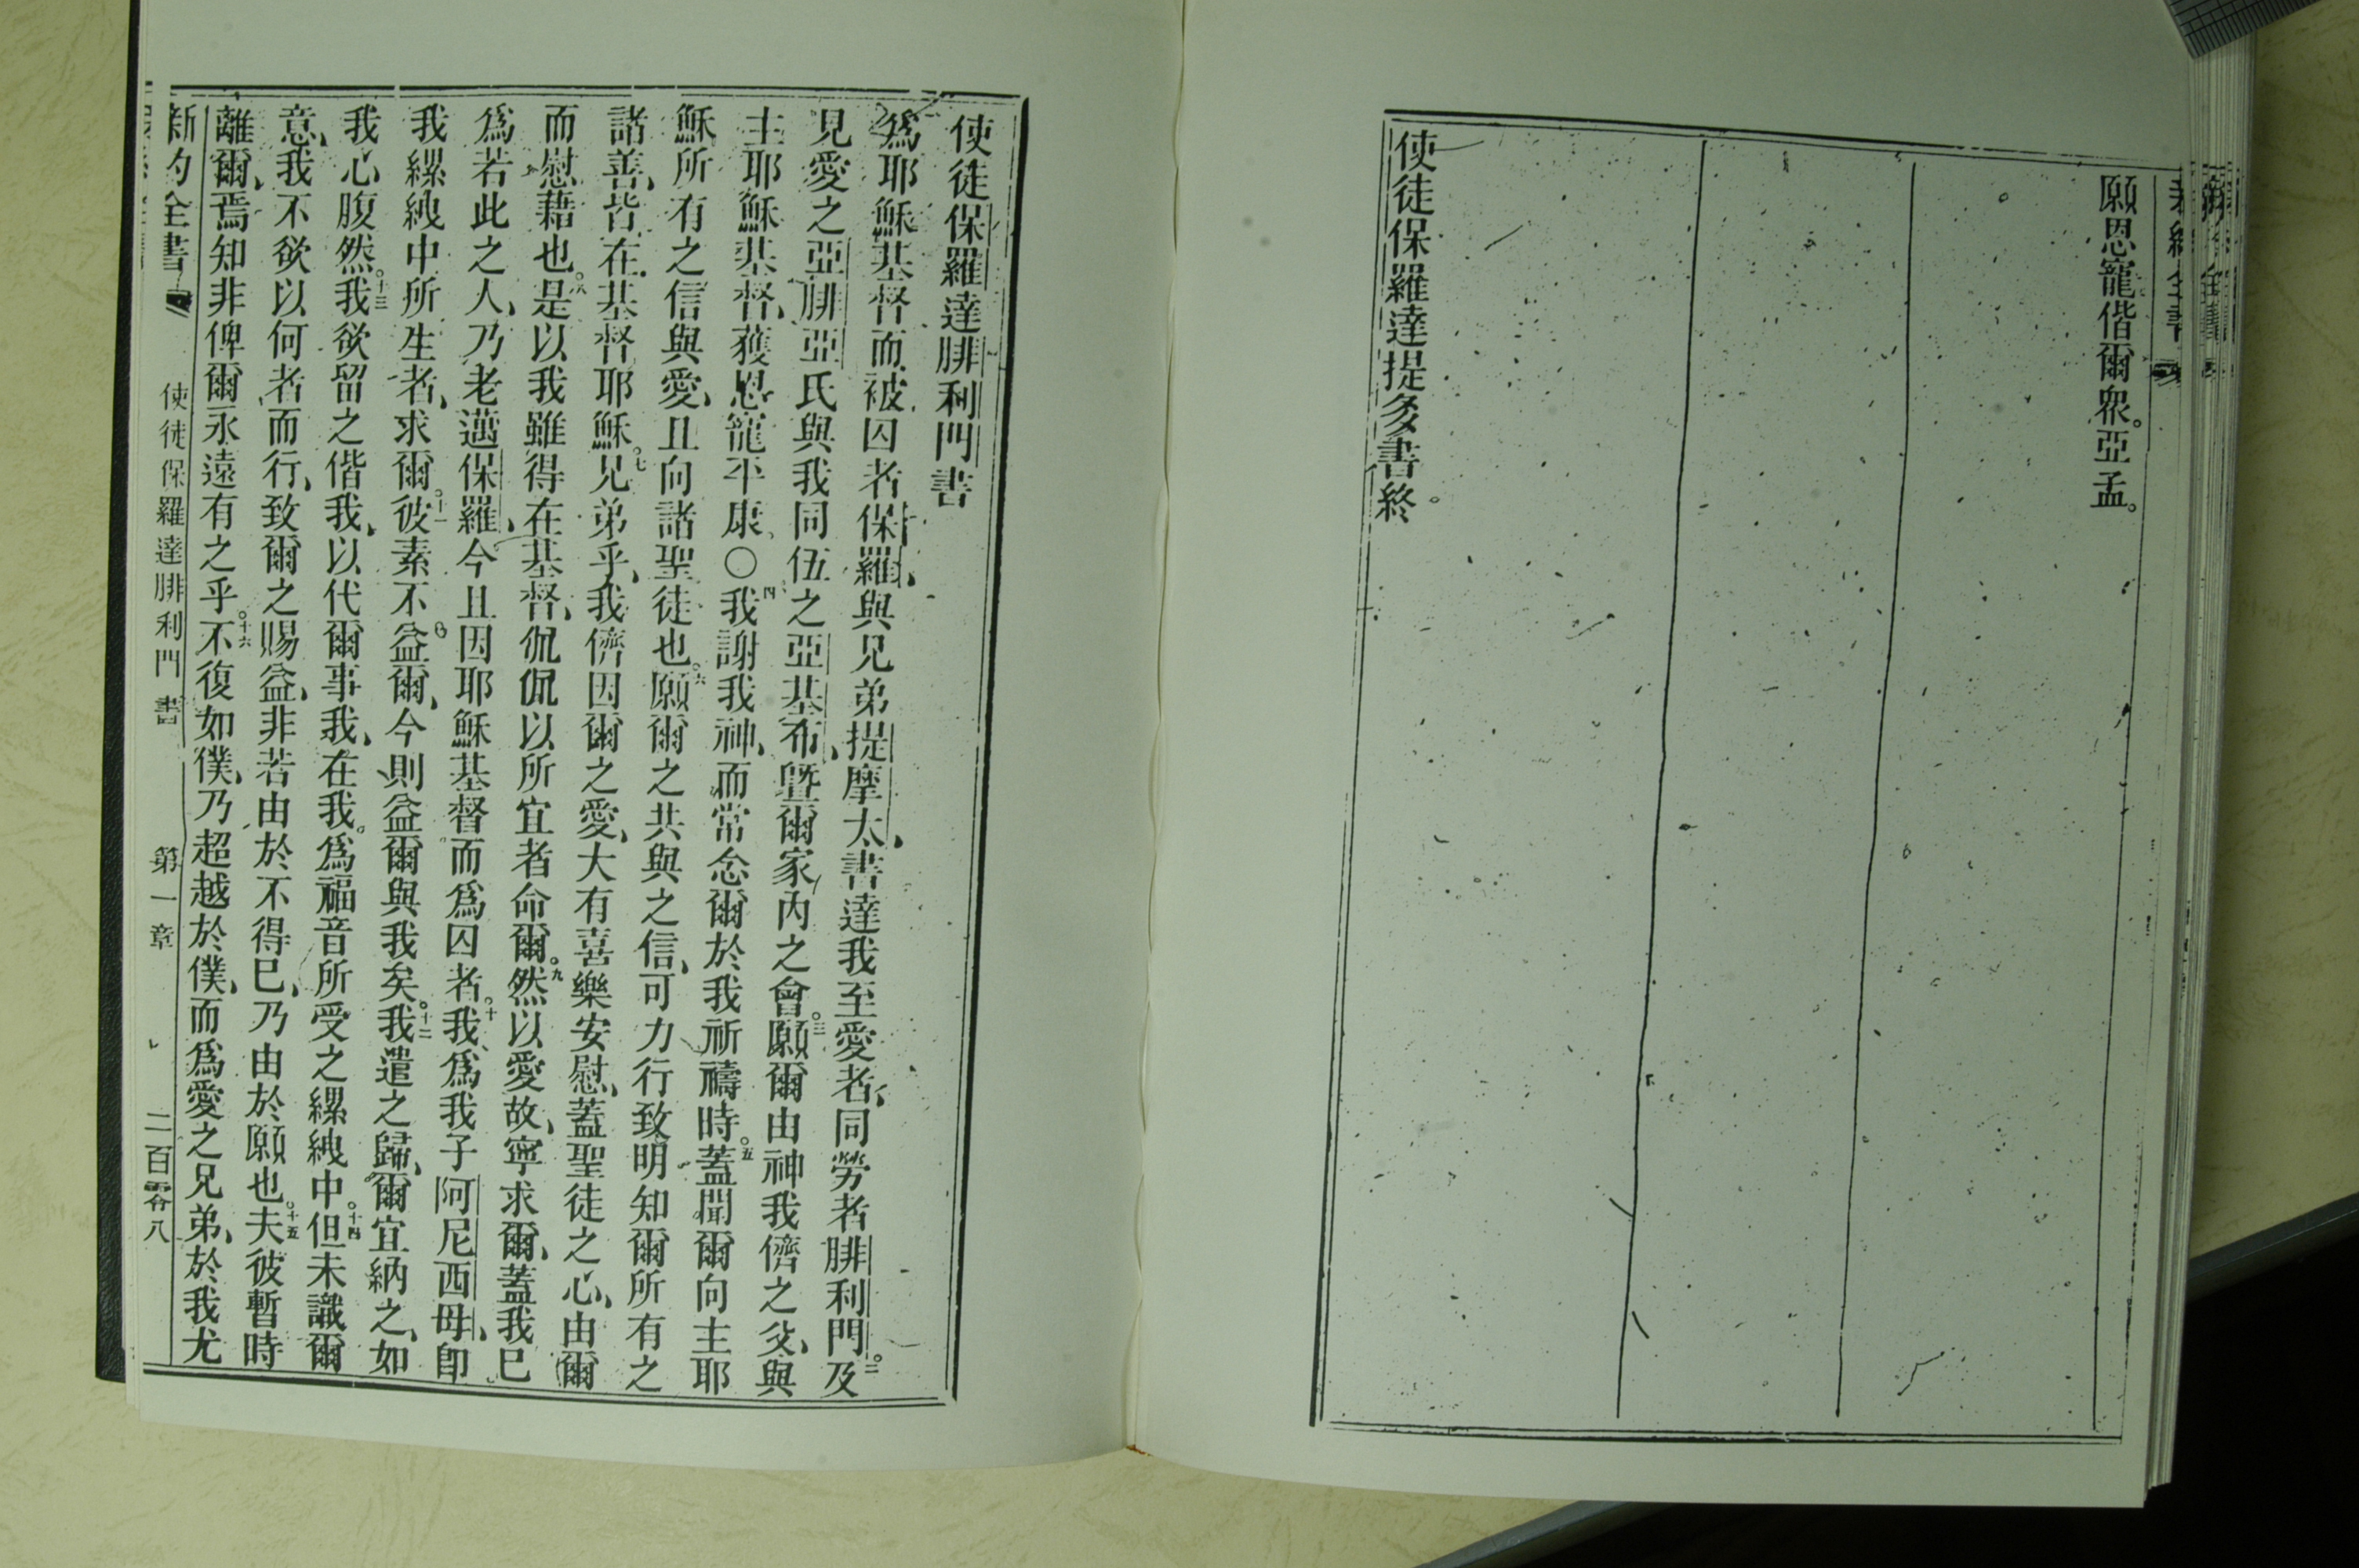 願恩寵偕爾衆。亞孟。
使徒保羅達提多書終。
使徒保羅達腓利門書
爲耶穌基督而被囚者保羅、與兄弟提摩太、書達我至愛者、同勞者腓利門。二及
見愛之亞腓亞氏與我同伍之亞基布、曁爾家內之會。三願爾由神我儕之父、與
主耶穌基督、獲恩寵平康。〇四我謝我神、而常念爾於我祈禱時。五蓋聞爾向主耶
穌所有之信與愛、且向諸聖徒也。六願爾之共與之信、可力行致明知爾所有之
諸善、皆在基督耶穌。七兄弟乎、我儕因爾之愛、大有喜樂安慰、蓋聖徒之心、由爾
而慰藉也。八是以我雖得在基督、侃侃以所宜者命爾。九然以愛故、寧求爾、蓋我已
爲若此之人、乃老邁保羅、今且因耶穌基督而爲囚者。十我爲我子阿尼西母、卽
我縲絏中所生者、求爾。十一彼素不益爾、今則益爾與我矣。十二我遣之歸、爾宜納之、如
我心腹然。十三我欲留之偕我、以代爾事我、在我爲福音所受之縲絏中。十四但未識爾
意、我不欲以何者而行、致爾之賜益、非若由於不得已、乃由於願也。十五夫彼暫時
離爾、焉知非俾爾永遠有之乎。十六不復如僕、乃超越於僕、而爲愛之兄弟、於我尤
新約全書 使徒保羅達腓利門書 第一章 二百零八